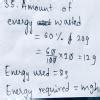 35. Amount of
energy wasted
= 60% of 20g
= 60/100 × 20 = 12g
Energy used = 8g
Energy required = mgh